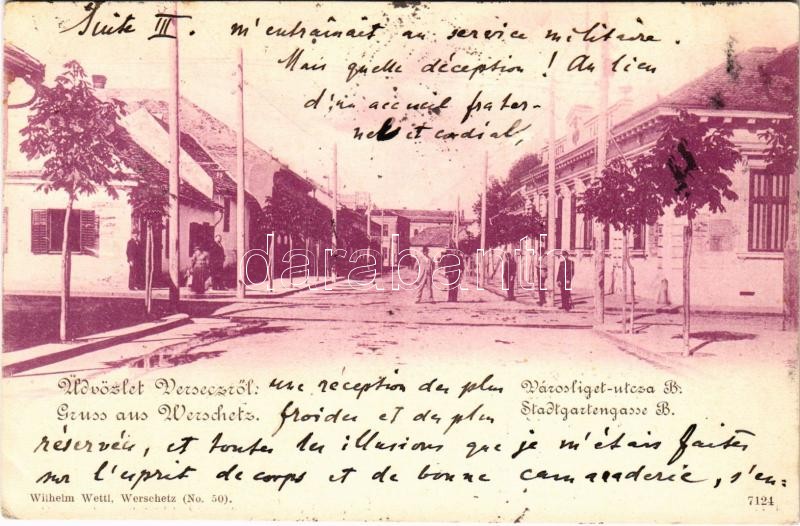 Suite III. m'entraînait au service militaire.
Mais quelle déception! Au lieu
d'un accueil frater-
nel et cordial,
darabanth
Üdvözlet Verseczről: une réception des plus Városliget-utcza B.
Gruss aus Werschetz. froides et des plus Stadtgartengasse B.
réservées, et toutes les illusions que je m'étais faites
sur l'esprit de corps et de bonne camaraderie, s'en-
Wilhelm Wettl, Werschetz (No. 50). 7124